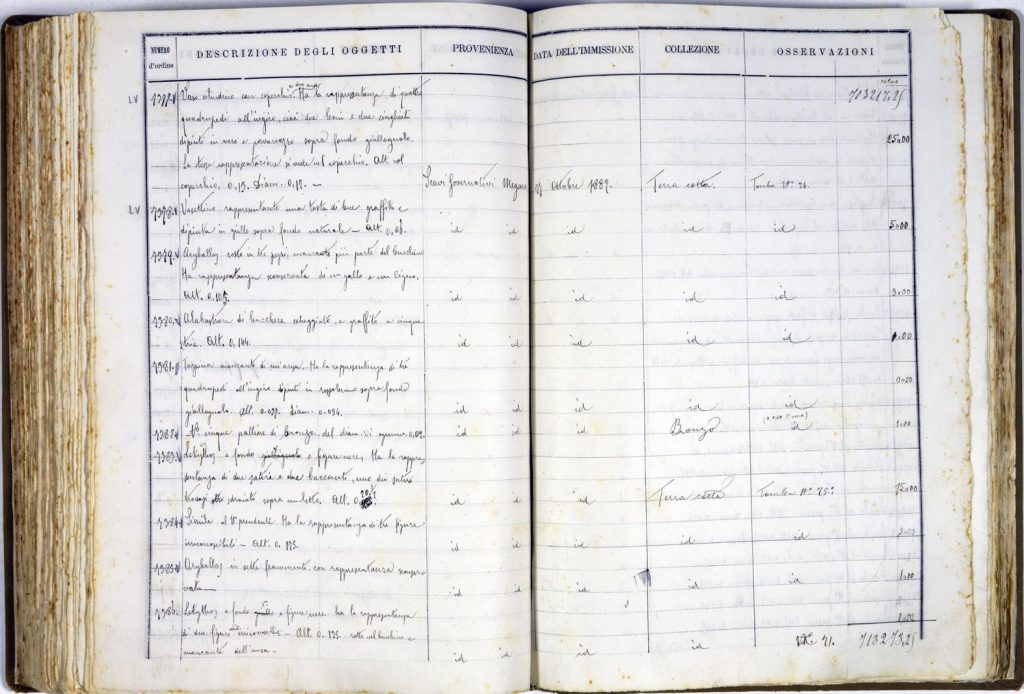 NUMERO d'ordine DESCRIZIONE DEGLI OGGETTI PROVENIENZA DATA DELL'IMMISSIONE COLLEZIONE OSSERVAZIONI
valore
LV 7377 Vaso cilindrico con coperchio. Ha la rappresentanza di quattro 713217,25
quadrupedi all'ingiro, cioè due leoni e due cinghiali
dipinti in nero e paonazzo sopra fondo giallognolo. 25.00
La stessa rappresentazione si vede nel coperchio. Alt. col
coperchio. 0,13. Diam. 0,12. — Scavi Governativi Megara 17 Ottobre 1889. Terra cotta. Tomba N° 24.
LV 7378 Vasettino rappresentante una testa di bue graffita e
dipinta in giallo sopra fondo naturale — Alt. 0,08. id id id id id 5.00
7379 Aryballos rotto in tre pezzi, mancante più parte del bucchino
Ha rappresentanza conservata di un gallo e un cigno.
Alt. 0.105. id id id id id 3.00
7380 Alabastron di bucchero scheggiato, e graffito a cinque
strie. Alt. 0,144. id id id id id 1.00
7381 Tazzina mancante di un'ansa. Ha la rappresentanza di tre
quadrupedi all'ingiro dipinti in rossobruno sopra fondo
giallognolo. Alt. 0.037. Diam. 0.054. id id id id id
7382 N° cinque palline di bronzo del diam. di ognuno 0,02. id id id Bronzo id 1.00
7383 Lekythos a fondo giallognolo e figure nere, Ha la rappre-
sentanza di due satiri e due baccanti, uno dei satiri
sdraiato sopra un letto. Alt. 0, id id id Terra cotta Tomba N° 25. 15.00
7384 Simile al N° precedente Ha la rappresentanza di tre figure
irriconoscibili — Alt. 0.175. id id id id id 3.00
7385 Aryballos in sette frammenti con rappresentanza
id id id id id 1.00
7386 Lekythos a fondo giallo e figure nere. ha la rappresentanza
di due figure irriconoscibili — Alt. 0.135. rotto nel bucchino e 1.00
mancante dell'ansa. — id id id id N° 41. 713273,25